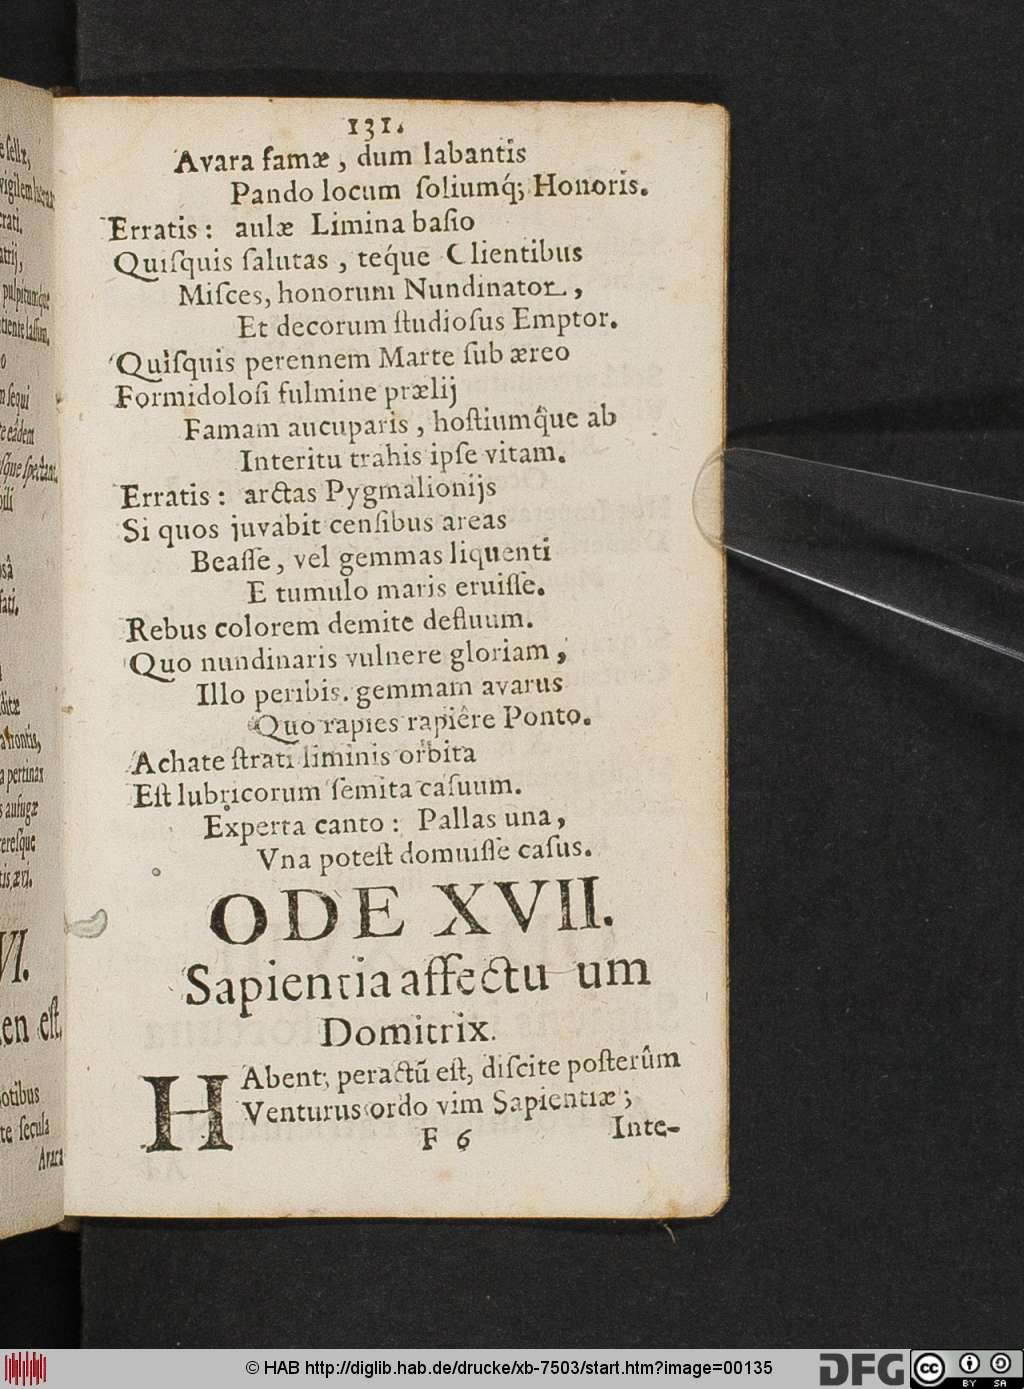 131.
Avara famæ, dum labantis
Pando locum ſoliumq́; Honoris.
Erratis: aulæ Limina baſio
Quiſquis ſalutas, teq́ue Clientibus
Miſces, honorum Nundinator,
Et decorum ſtudioſus Emptor.
Quiſquis perennem Marte ſub æreo
Formidoloſi fulmine prælij
Famam aucuparis, hoſtiumq̂ue ab
Interitu trahis ipſe vitam.
Erratis: arctas Pygmalionijs
Si quos juvabit cenſibus areas
Beaſſe, vel gemmas liquenti
E tumulo maris eruiſſe.
Rebus colorem demite defluum.
Quo nundinaris vulnere gloriam,
Illo peribis. gemmam avarus
Quo rapies rapiêre Ponto.
Achate ſtrati liminis orbita
Eſt lubricorum ſemita caſuum.
Experta canto: Pallas una,
Vna poteſt domuiſſe caſus.
ODE XVII.
Sapientia affectu um
Domitrix.
HAbent, peractū eſt, diſcite poſterûm
Venturus ordo vim Sapientiæ;
F 6 Inte-
© HAB http://diglib.hab.de/drucke/xb-7503/start.htm?image=00135
DFG
cc BY SA